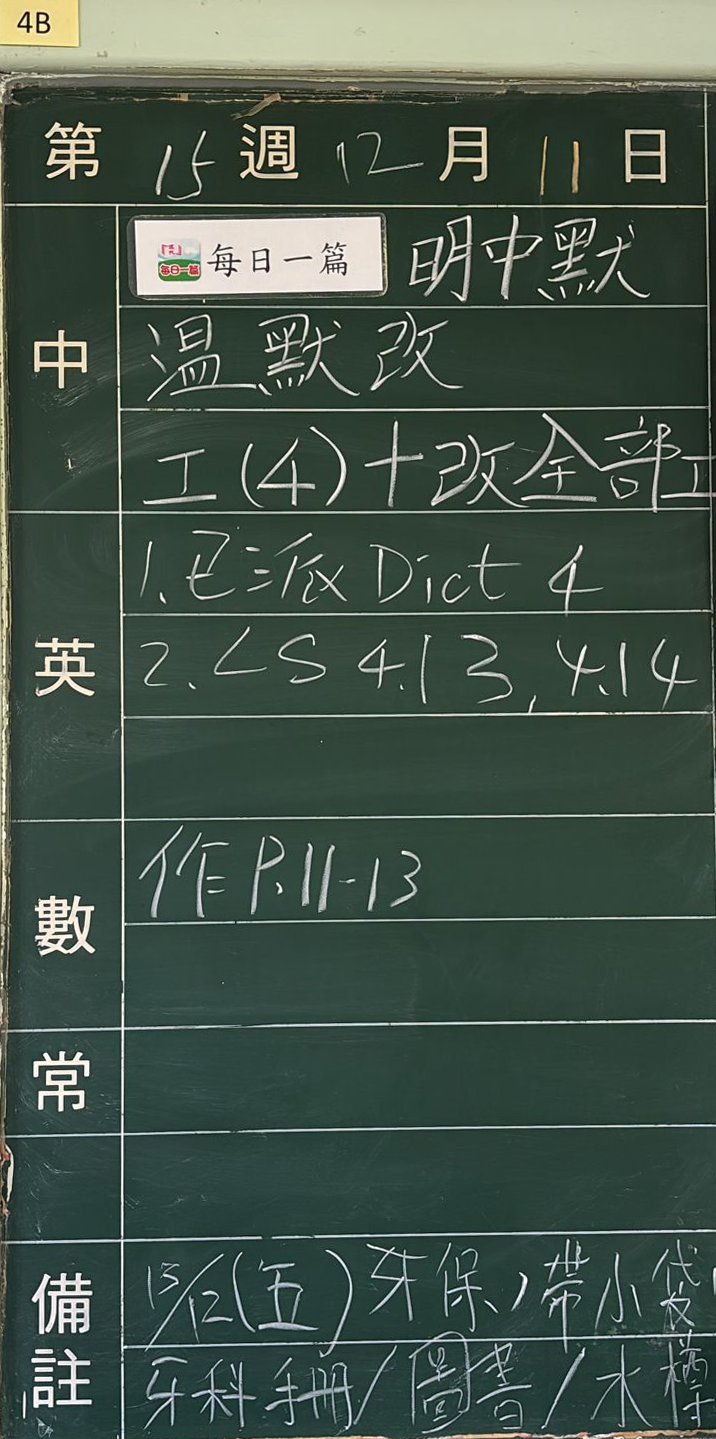 4B
第 15 週 12 月 11 日
中
每日一篇 明中默
溫默改
工(4)+改全部工
英
1.已派 Dict 4
2. LS 4.13, 4.14
數
作 P.11-13
常
備註
13/12(五)牙保,帶小袋
牙科手冊/圖書/水樽